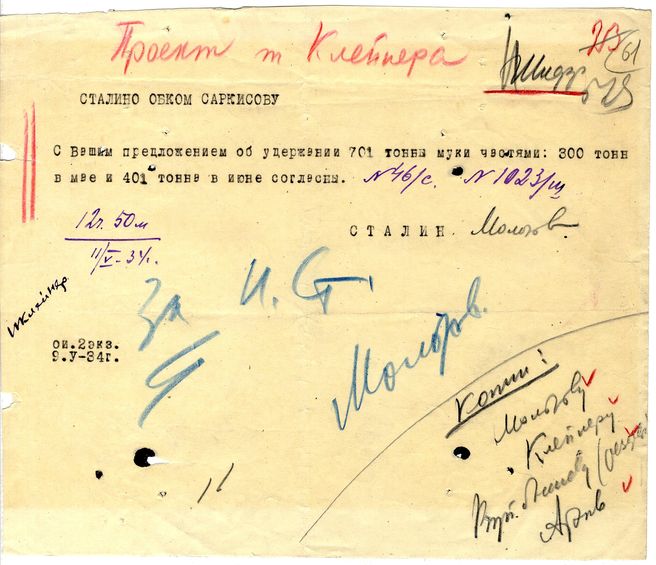 Проект т Клейнера
61
СТАЛИНО ОБКОМ САРКИСОВУ
С Вашим предложением об удержании 701 тонны муки частями: 300 тонн
в мае и 401 тонна в июне согласны. N46/с. N1023/ш
12ч. 50м
11/V-34г.
СТАЛИН. Молотов
ИКлейнер.
За И. Ст.
Молотов.
ои.2экз.
9.У-34г.
Копии:
Молотову
Клейнеру
Архив